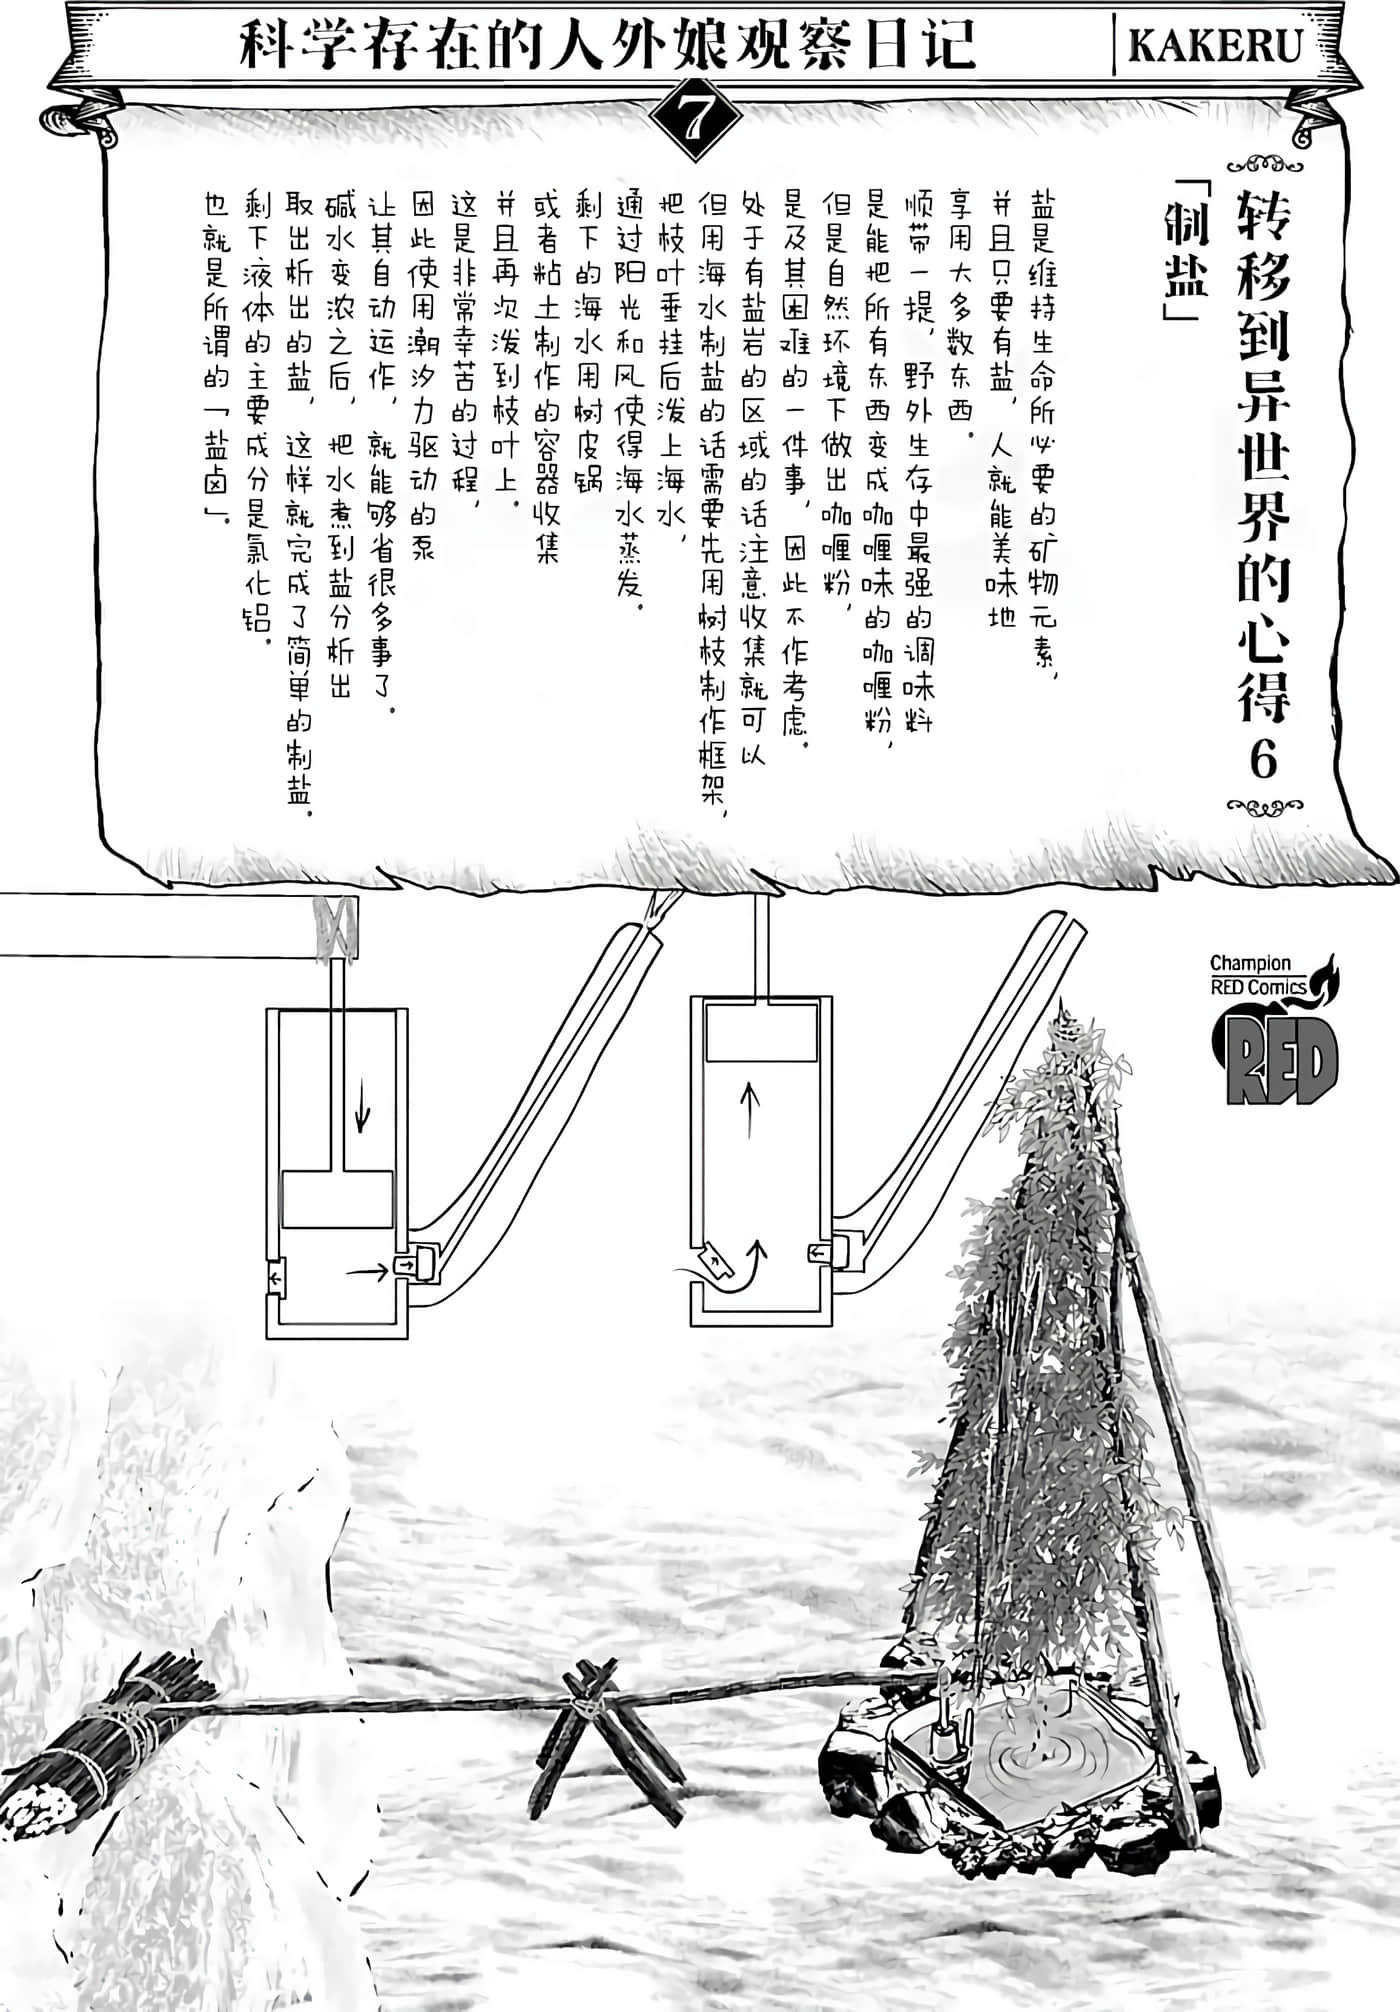 科学存在的人外娘观察日记
KAKERU
7
转移到异世界的心得6
「制盐」
盐是维持生命所必要的矿物元素，
并且只要有盐，人就能美味地
享用大多数东西。
顺带一提，野外生存中最强的调味料
是能把所有东西变成咖喱味的咖喱粉，
但是自然环境下做出咖喱粉，
是及其困难的一件事，因此不作考虑。
处于有盐岩的区域的话注意收集就可以
但用海水制盐的话需要先用树枝制作框架，
把枝叶垂挂后泼上海水，
通过阳光和风使得海水蒸发。
剩下的海水用树皮锅
或者粘土制作的容器收集
并且再次泼到枝叶上。
这是非常辛苦的过程，
因此使用潮汐力驱动的泵
让其自动运作，就能够省很多事了。
碱水变浓之后，把水煮到盐分析出
取出析出的盐，这样就完成了简单的制盐。
剩下液体的主要成分是氯化铝。
也就是所谓的「盐卤」。
Champion
RED Comics
RED